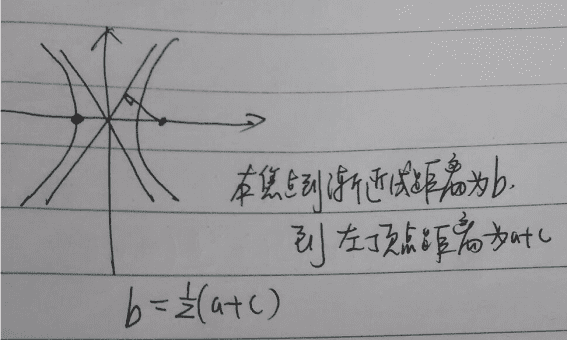 右焦点到渐近线距离为b.
到左顶点距离为a+c
b=½(a+c)